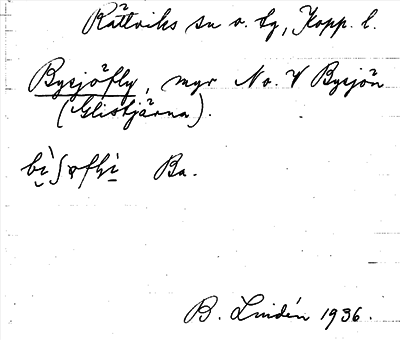 Rättviks sn o. tg, Kopp. l.
Bysjöfly, myr No. V Bysjön
(Glistjärna).
Ba.
B. Lindén 1936.